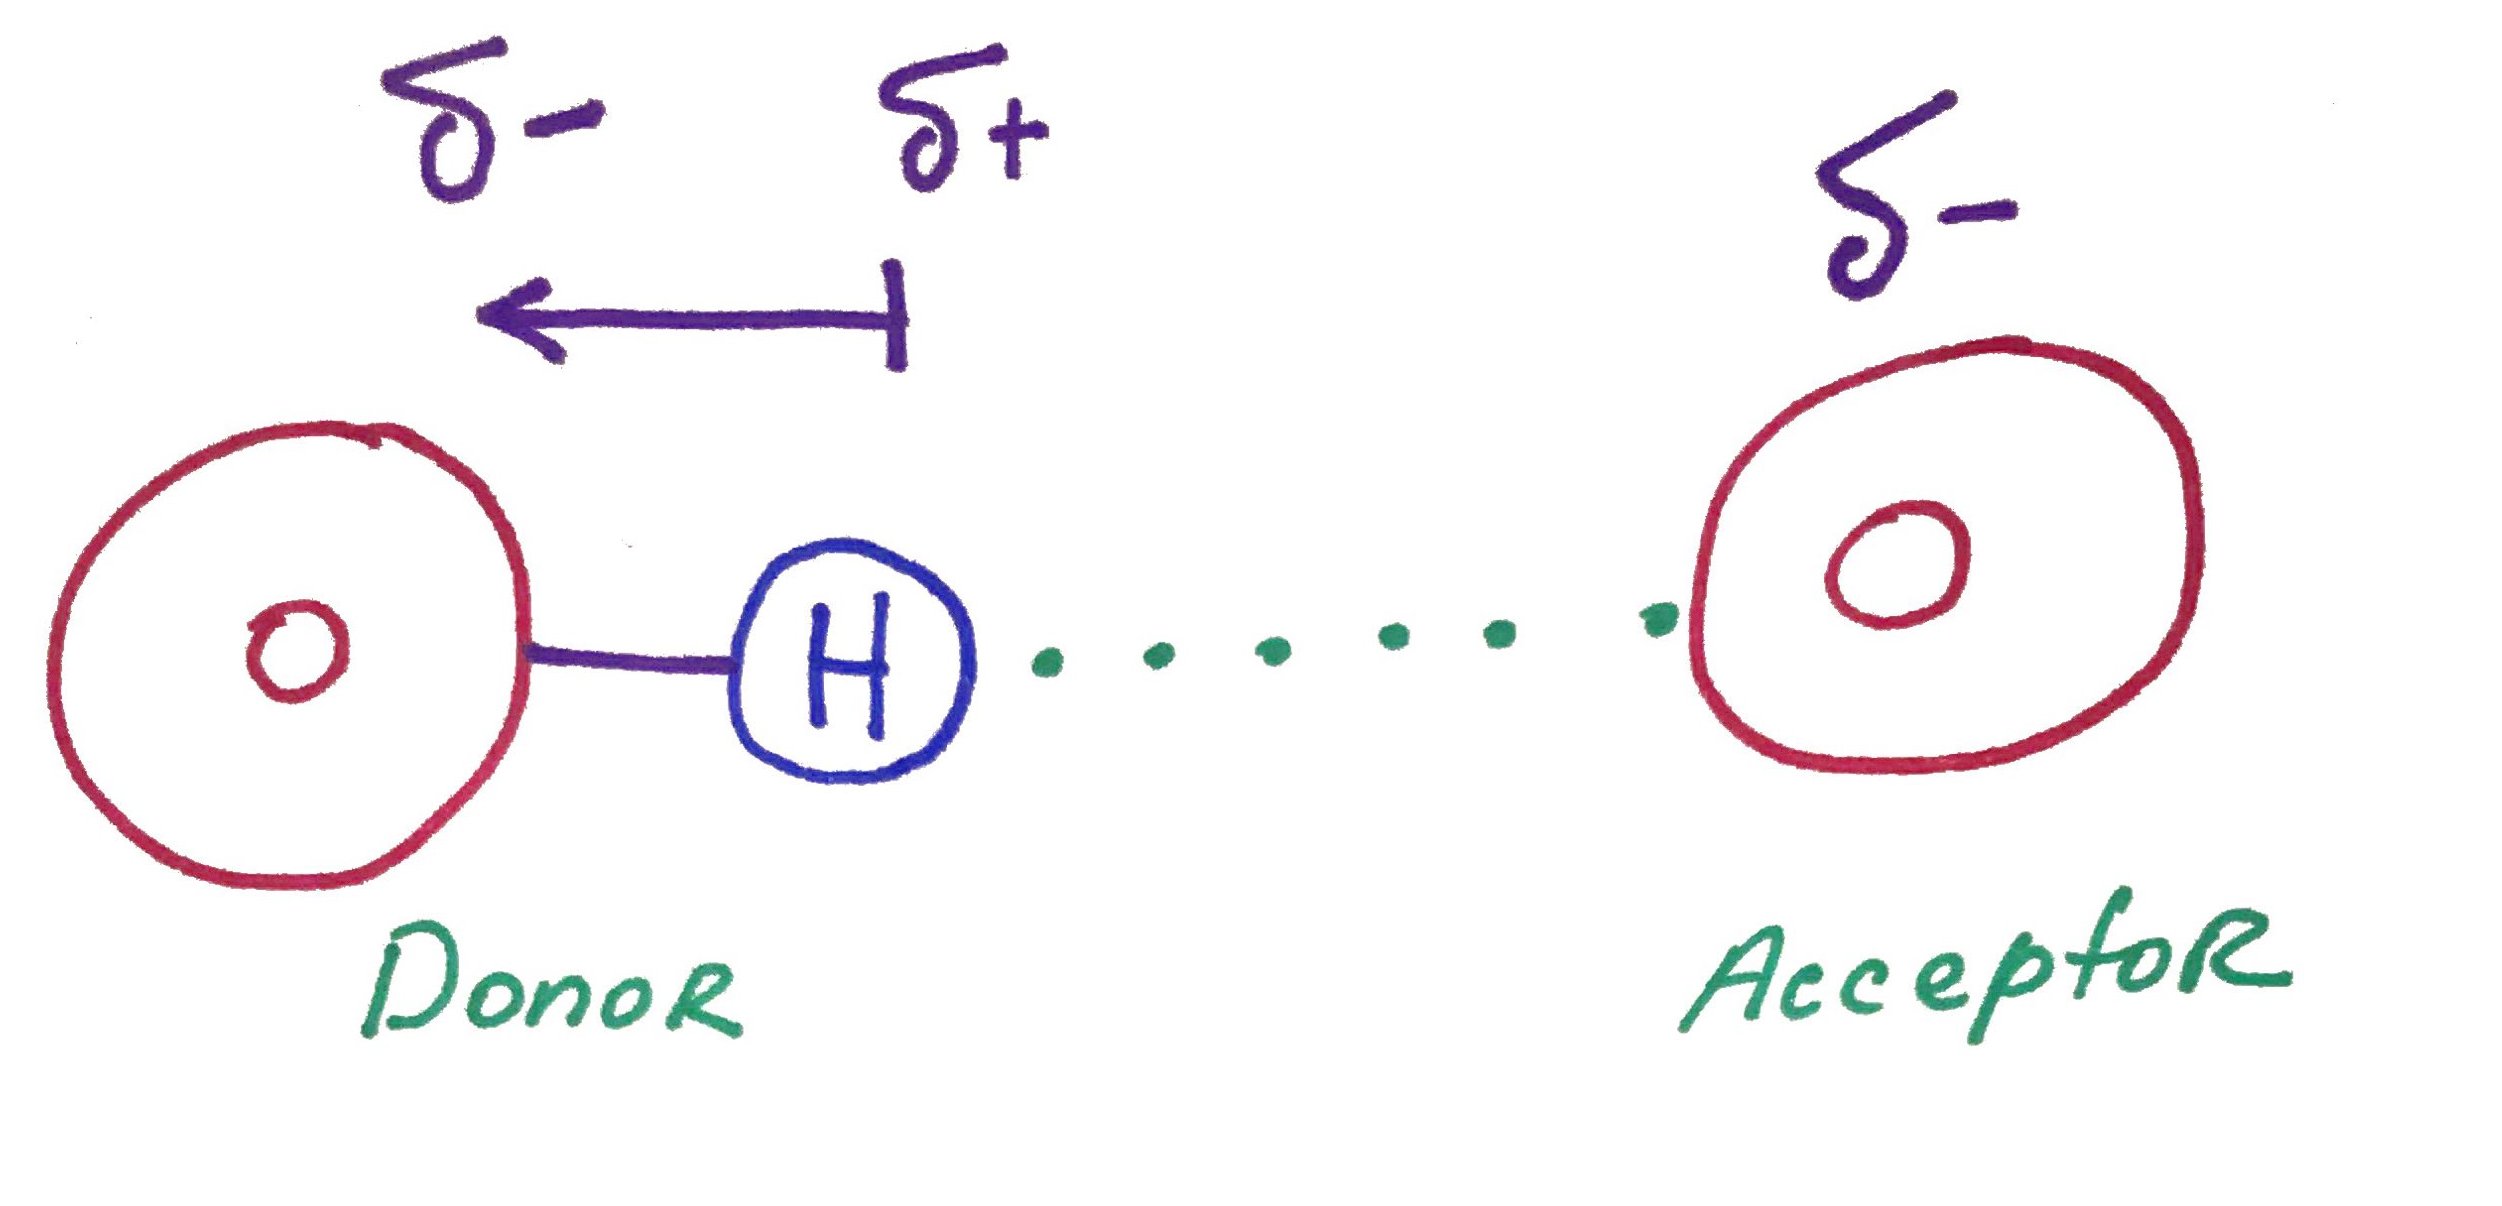 δ- δ+ δ-
O H O
Donor Acceptor